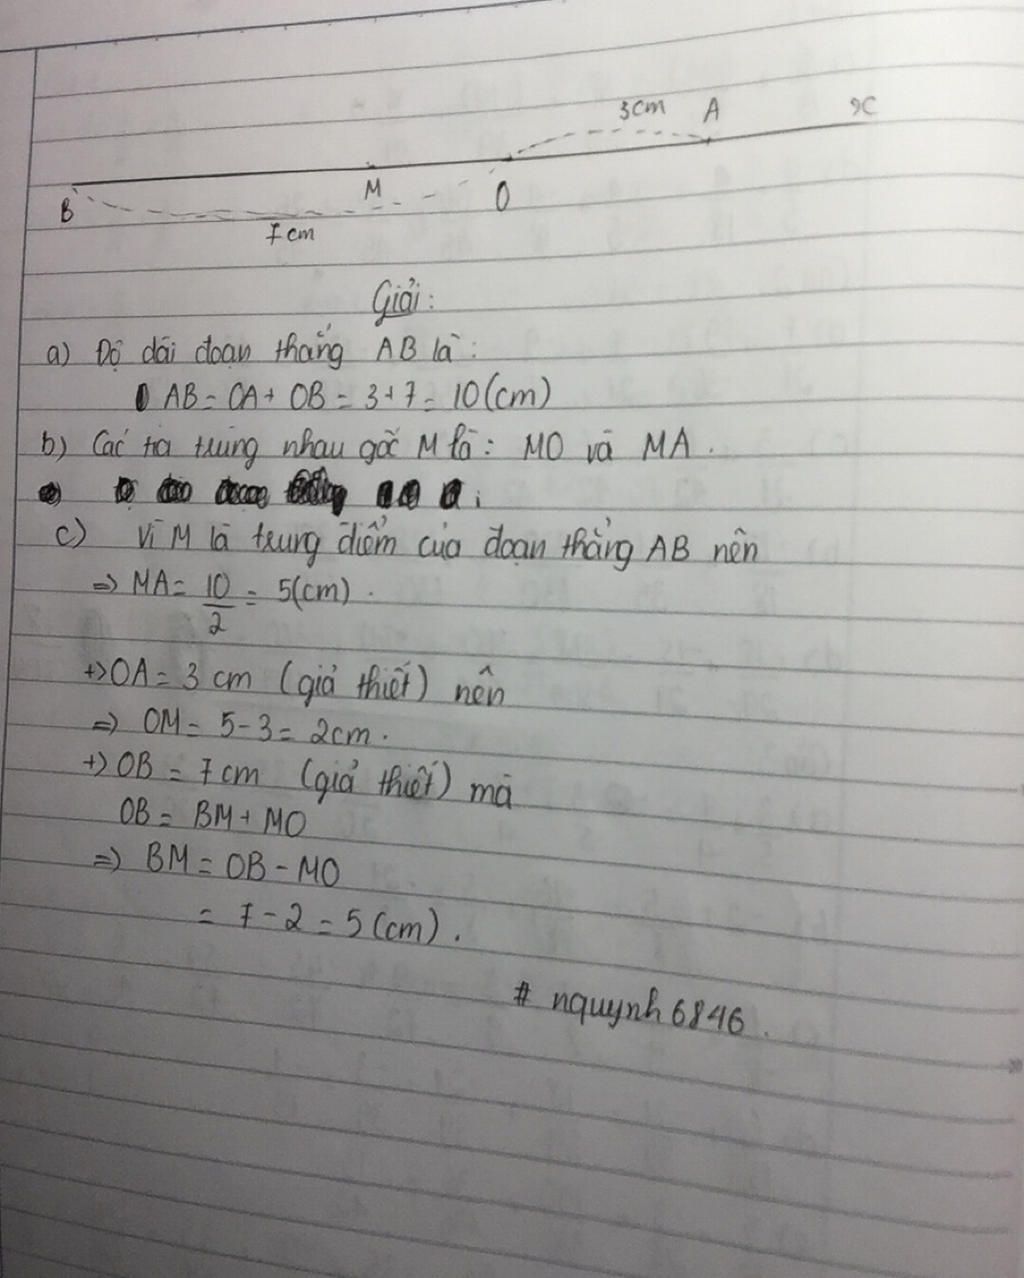 3cm A x
B M O
7cm
Giải:
a) Độ dài đoạn thẳng AB là:
AB = OA + OB = 3 + 7 = 10 (cm)
b) Các tia trùng nhau gốc M là: MO và MA.
c) Vì M là trung điểm của đoạn thẳng AB nên
=> MA = 10/2 = 5(cm).
+> OA = 3 cm (giả thiết) nên
=> OM = 5 - 3 = 2cm.
+> OB = 7cm (giả thiết) mà
OB = BM + MO
=> BM = OB - MO
= 7 - 2 = 5 (cm).
# nquynh6846.